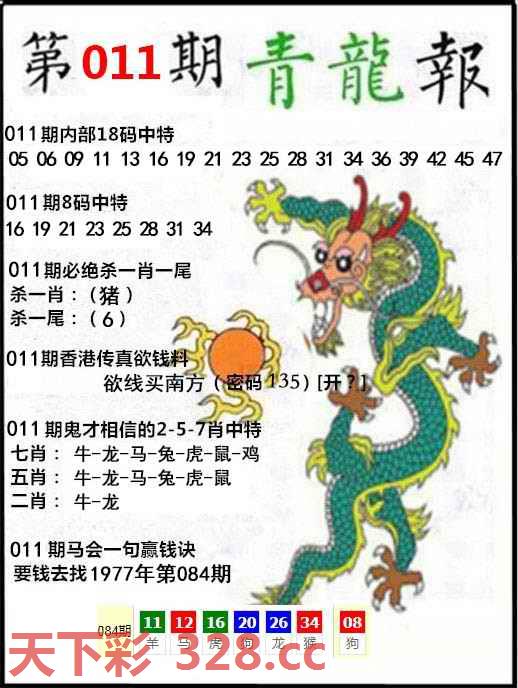 第011期 青龍報
011期内部18码中特
05 06 09 11 13 16 19 21 23 25 28 31 34 36 39 42 45 47
011期8码中特
16 19 21 23 25 28 31 34
011期必绝杀一肖一尾
杀一肖：（猪）
杀一尾：（6）
011期香港传真欲钱料
欲线买南方（密码135）[开？]
011期鬼才相信的2-5-7肖中特
七肖： 牛-龙-马-兔-虎-鼠-鸡
五肖： 牛-龙-马-兔-虎-鼠
二肖： 牛-龙
011期马会一句赢钱诀
要钱去找1977年第084期
084期 11 12 16 20 26 34 08
羊 马 虎 狗 龙 猴 狗
天下彩 328.cc